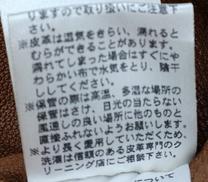 りますので取り扱いにご注意下
さい。
※皮革は湿気をきらい、濡れると
むらができることがあります。
濡れてしまった場合はすぐにや
わらかい布で水気をとり、陰干
して下さい。
※保管の際は高温、多湿な場所の
保管はさけ、日光の当たらない
風通しの良い場所に他のものと
直接ふれないようお願いします。
※より長く愛用していただくため、
洗濯は信頼のある皮革専門のク
リーニング店にご相談下さい。